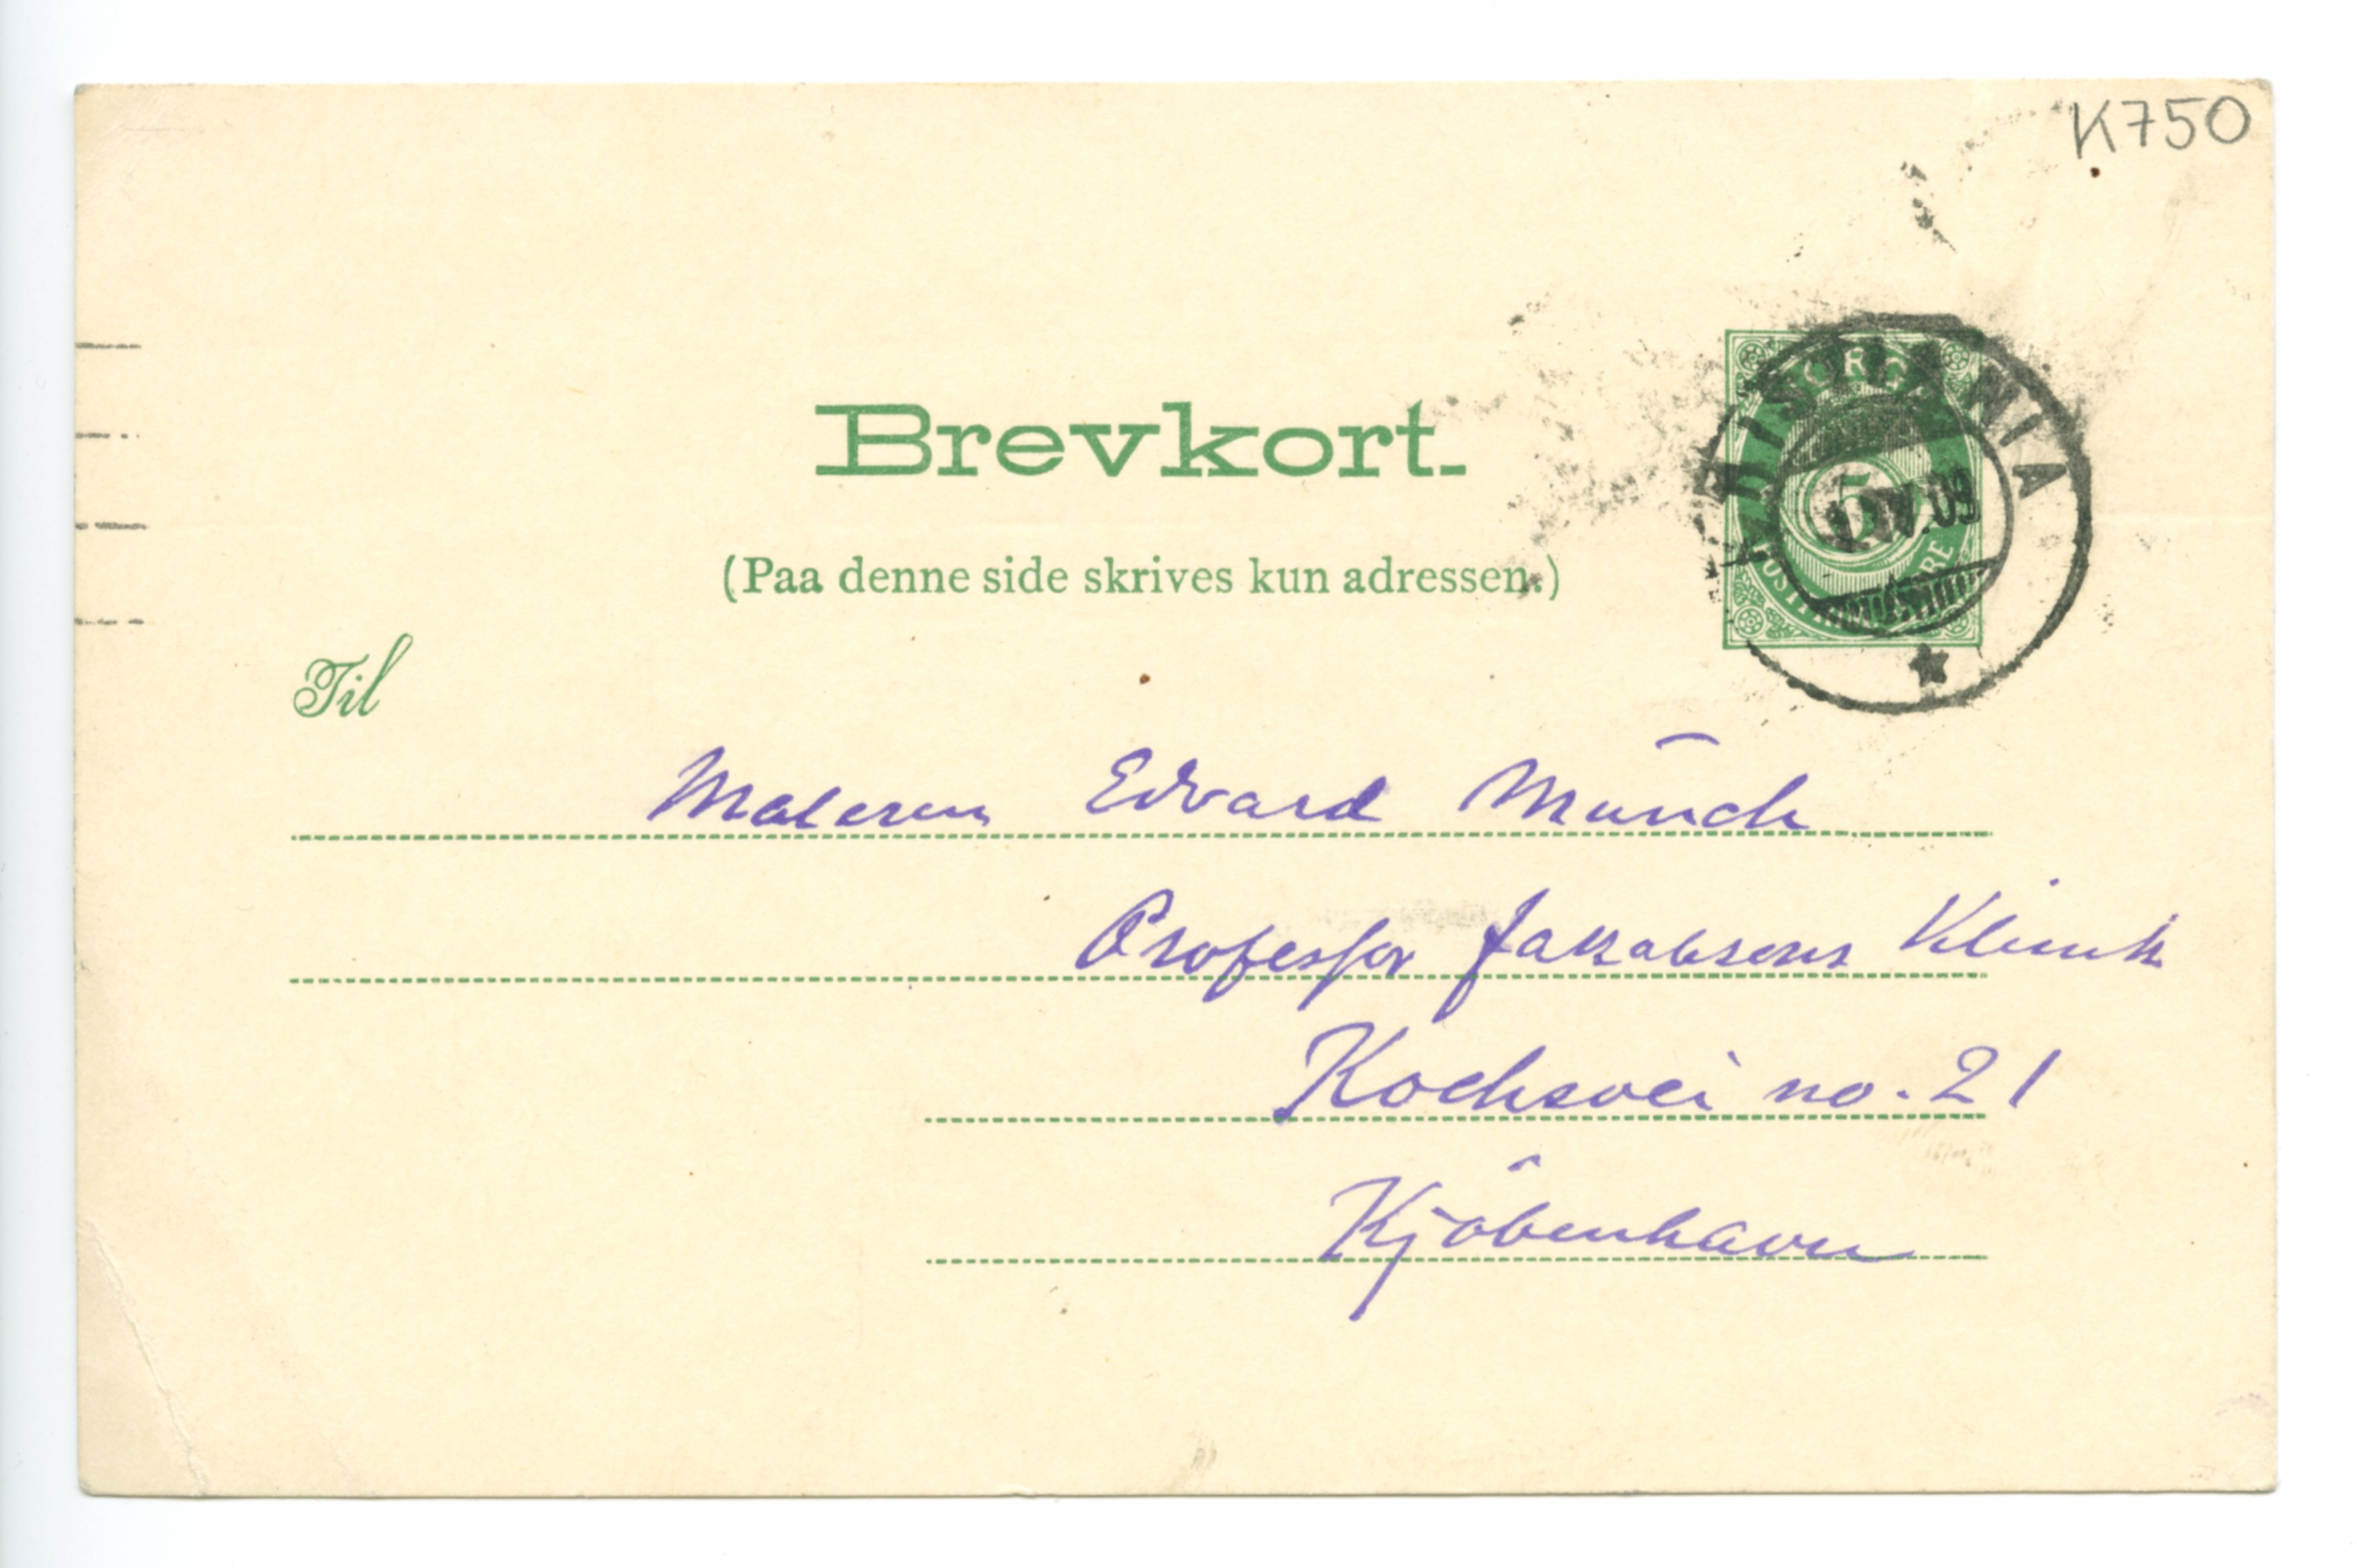 K750
Brevkort.
NORGE
KRISTIANIA
5
IV.09
(Paa denne side skrives kun adressen.)
Til
Maleren Edvard Munch
Professor Jakobsens Klinik
Kochsvei no. 21
Kjöbenhavn